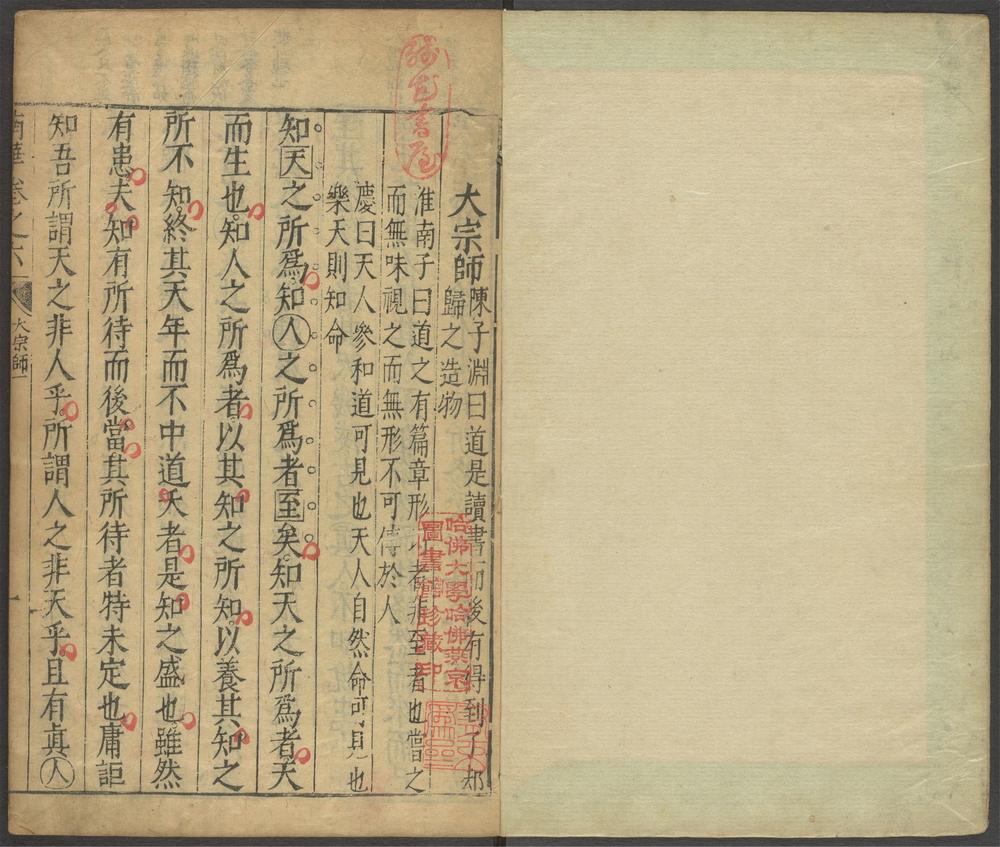 大宗師
陳子淵曰道是讀書而後有得到子
歸之造物
淮南子曰道之有篇章形 者非至者也嘗之
而無味視之而無形不可傳於人
慶曰天人參和道可見也天人自然命可見也
樂天則知命
知天之所爲知人之所爲者至矣知天之所爲者天
而生也知人之所爲者以其知之所知以養其知之
所不知終其天年而不中道夭者是知之盛也雖然
有患夫知有所待而後當其所待者特未定也庸詎
知吾所謂天之非人乎所謂人之非天乎且有真人
南華卷之六
大宗師
一
哈佛大學哈佛燕京
圖書館珍藏印